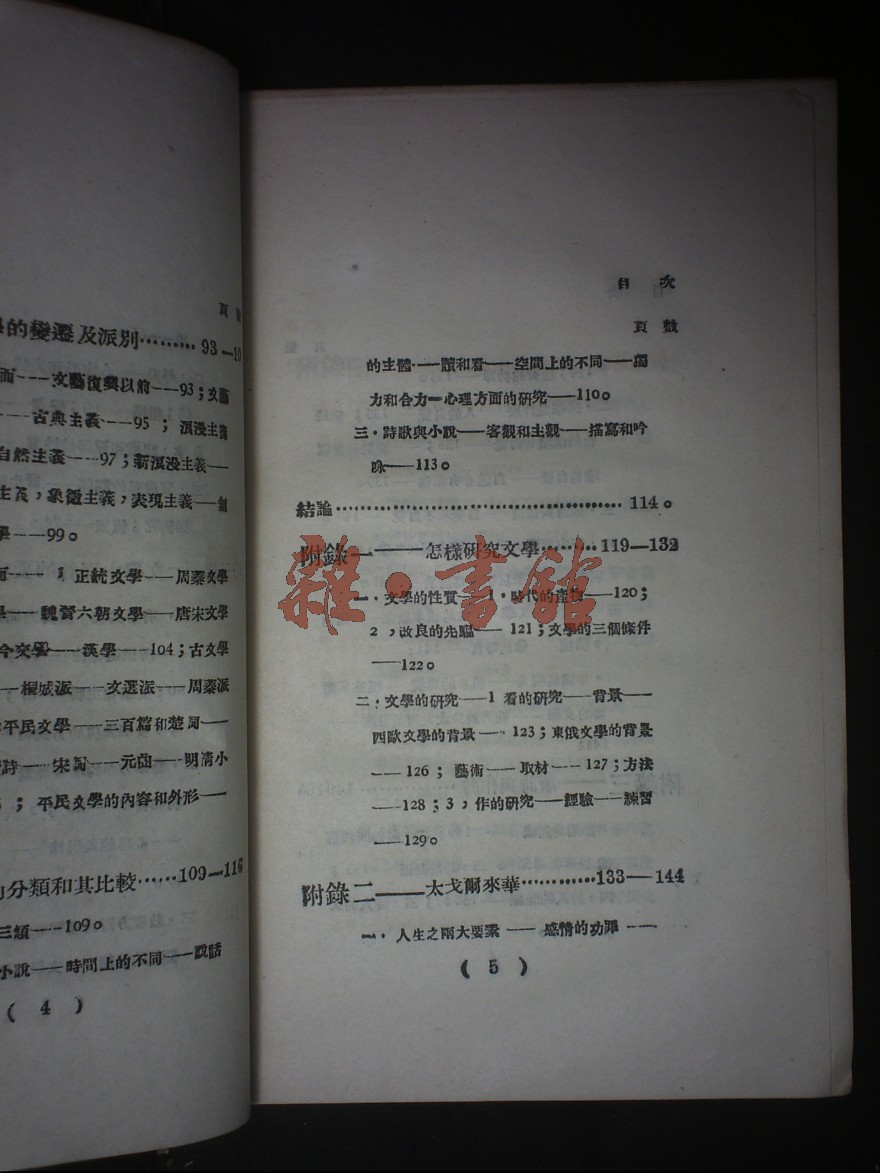 頁
的變遷及派別………93—10
面---文藝復興以前---93；文藝
---古典主義---95；浪漫主義
自然主義---97；新浪漫主義---
主義，象徵主義，表現主義---
學---99。
面---1 正統文學---周秦文學
---魏晉六朝文學---唐宋文學
今文學---漢學---104；古文學
---桐城派---文選派---周秦派
平民文學---三百篇和楚詞---
詩---宋詞---元曲---明清小
；平民文學的內容和外形---
分類和其比較……109—116
三類---109。
小說---時間上的不同---說話
( 4 )
目次
頁數
的主體---讀和看---空間上的不同---獨
力和合力—心理方面的研究---110。
三．詩歌與小說---客觀和主觀---描寫和吟
咏---113。
結論……………………………………114。
附錄一———怎樣研究文學………119—132
一．文學的性質---1．時代的產物---120；
2，改良的先驅---121；文學的三個條件
---122。
二．文學的研究---1 看的研究---背景---
西歐文學的背景---123；東俄文學的背景
---126；藝術---取材---127；方法
---128；3，作的研究---經驗---練習
---129。
附錄二———太戈爾來華…………133—144
一．人生之兩大要素---感情的功罪---
( 5 )
雜·書館